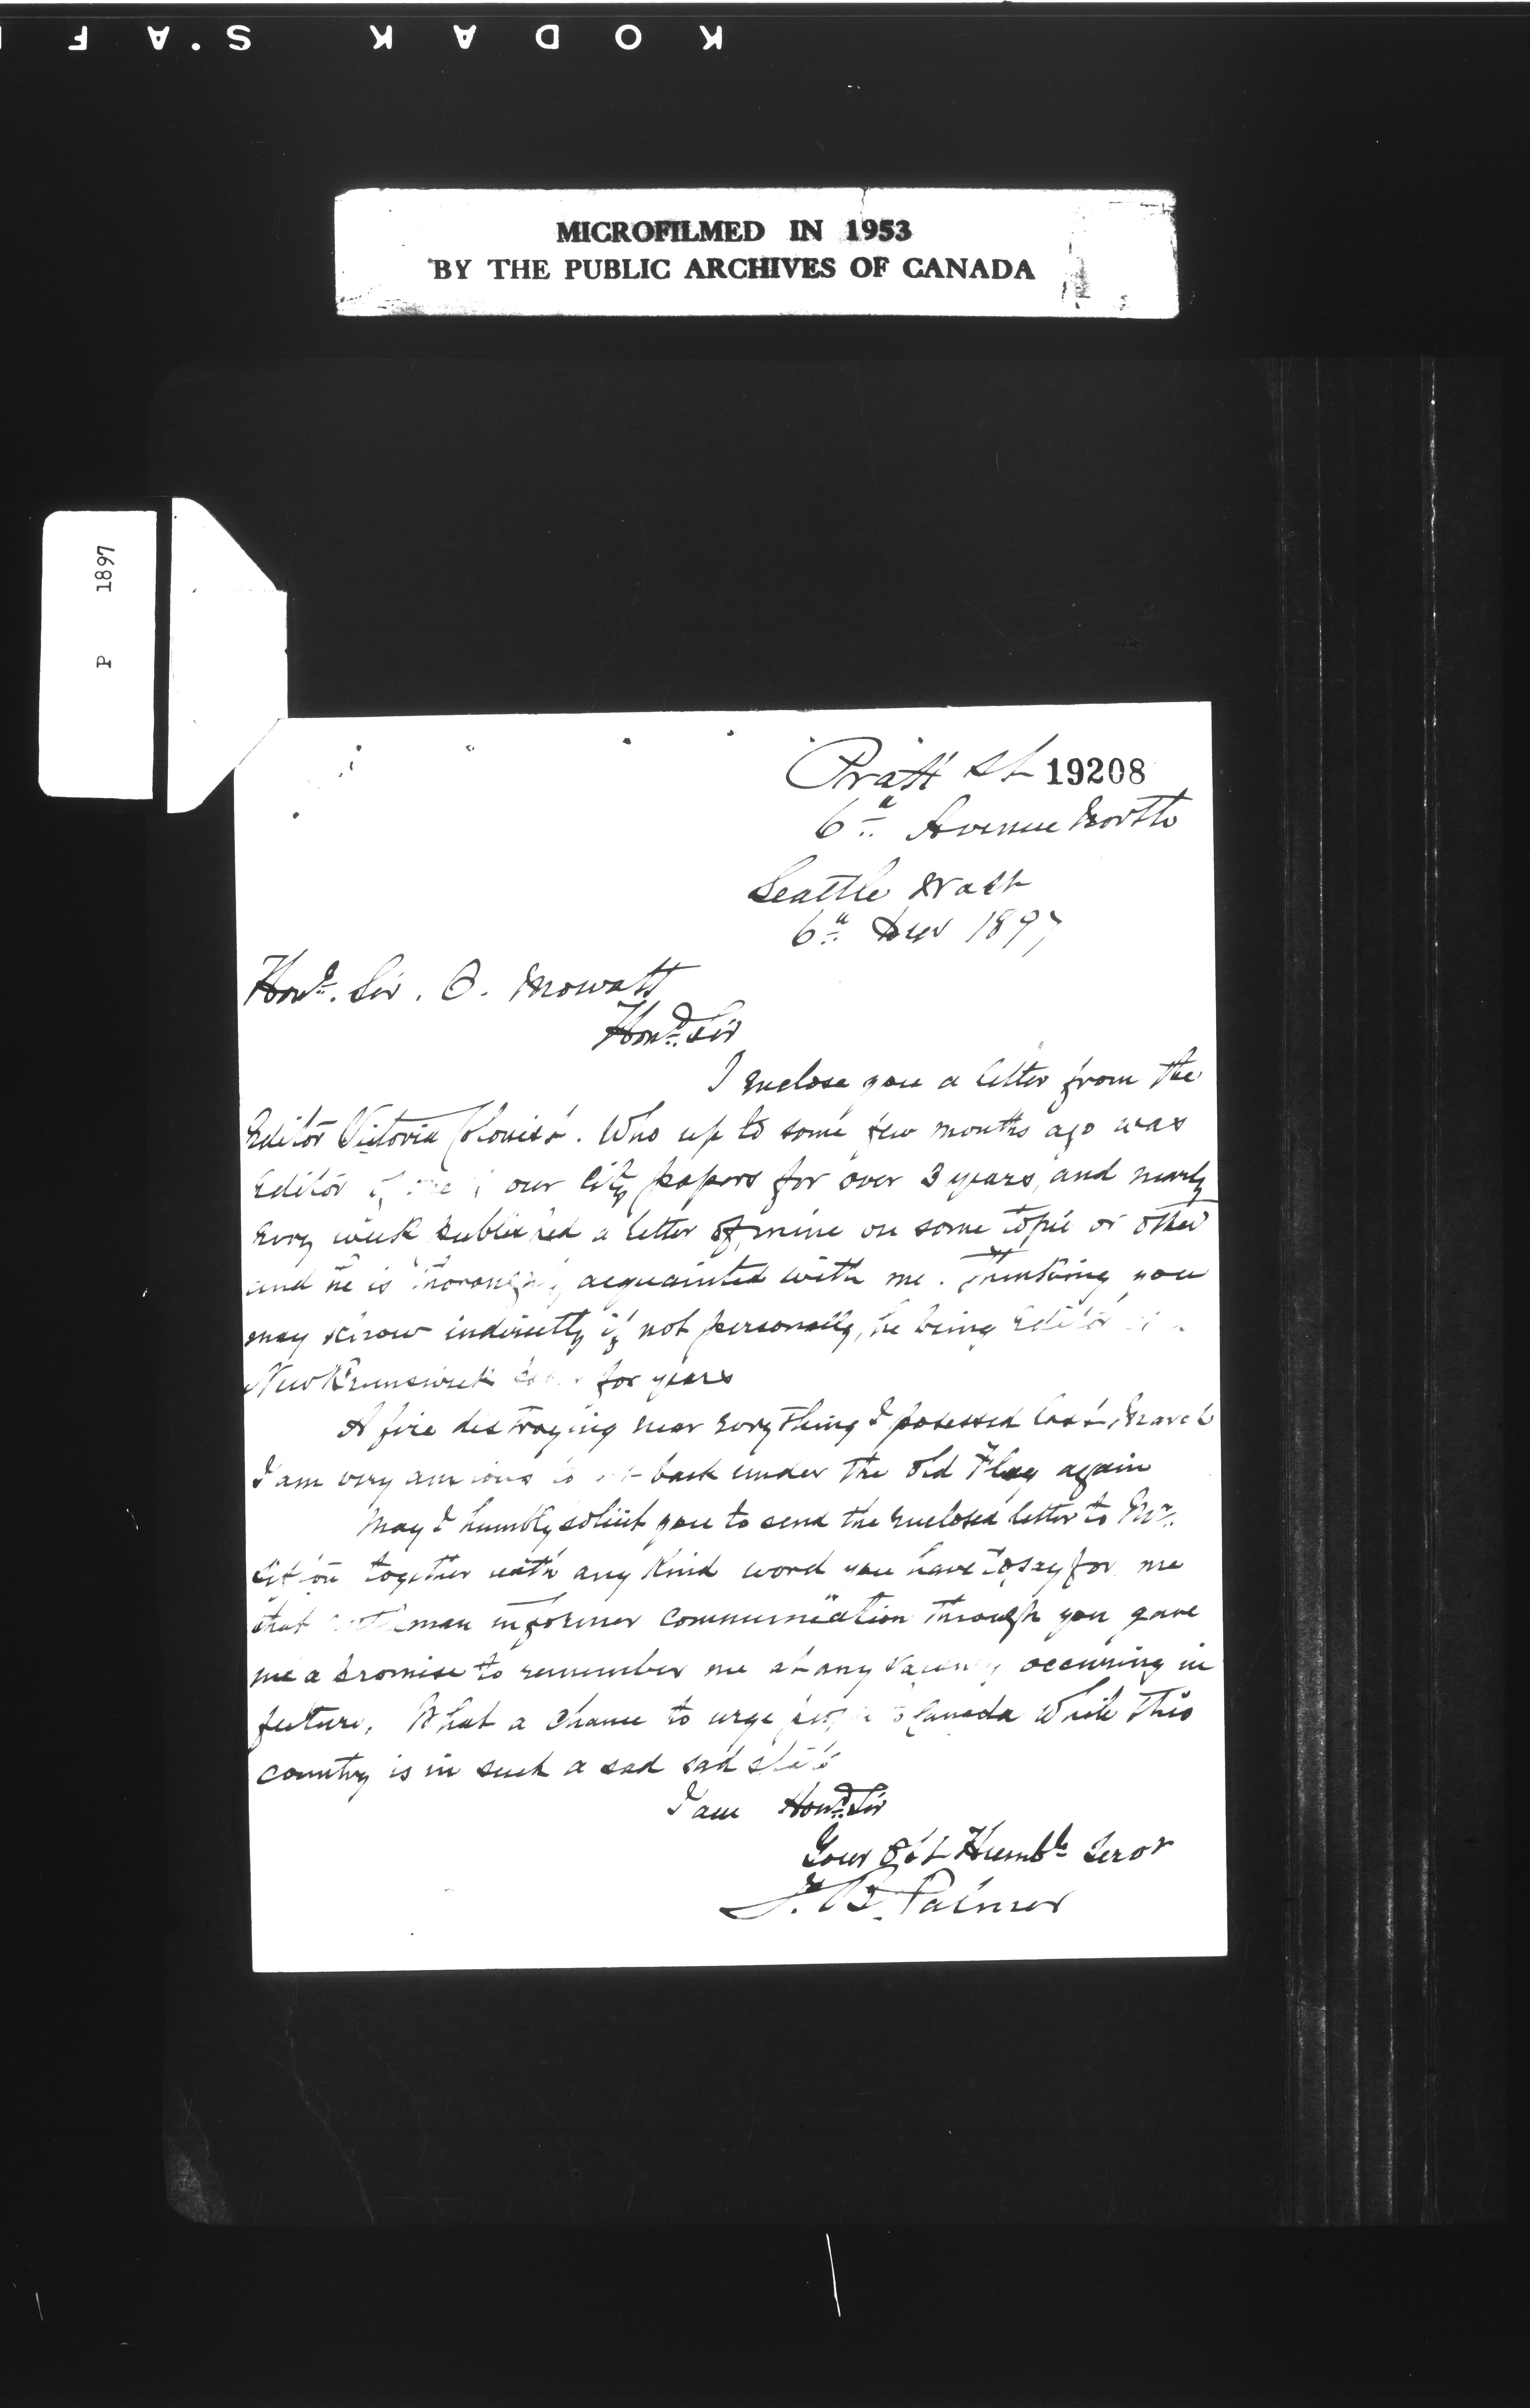 KODAK S.AF
MICROFILMED IN 1953
BY THE PUBLIC ARCHIVES OF CANADA
P 1897
Pratt St 19208
6th Avenue North
Seattle Wash
6th 1897
Honl. Sir. O. Mowatt
Hond. Sir
I enclose you a letter from the
Editor Victoria Colonist. Who up to some few months ago was
Editor our City papers for over 3 years, and nearly
evry week published a letter of mine on some topic or other
and he is thoroughly acquainted with me. Thinking you
may know indirectly if not personally, he being Editor
New Brunswick for years
A fire destroying near evrything I posessed last March
I am very anxious to back under the Old Flag again
May I humbly solicit you to send the enclosed letter to Mr.
together with any kind word you have to say for me
that in former communication through you gave
me a promise to remember me at any vacancy occurring in
future. What a chance to urge people to Canada while this
country is in such a sad sad state
I am Hond. Sir
Your Obt Humble Servt
J. B. Palmer